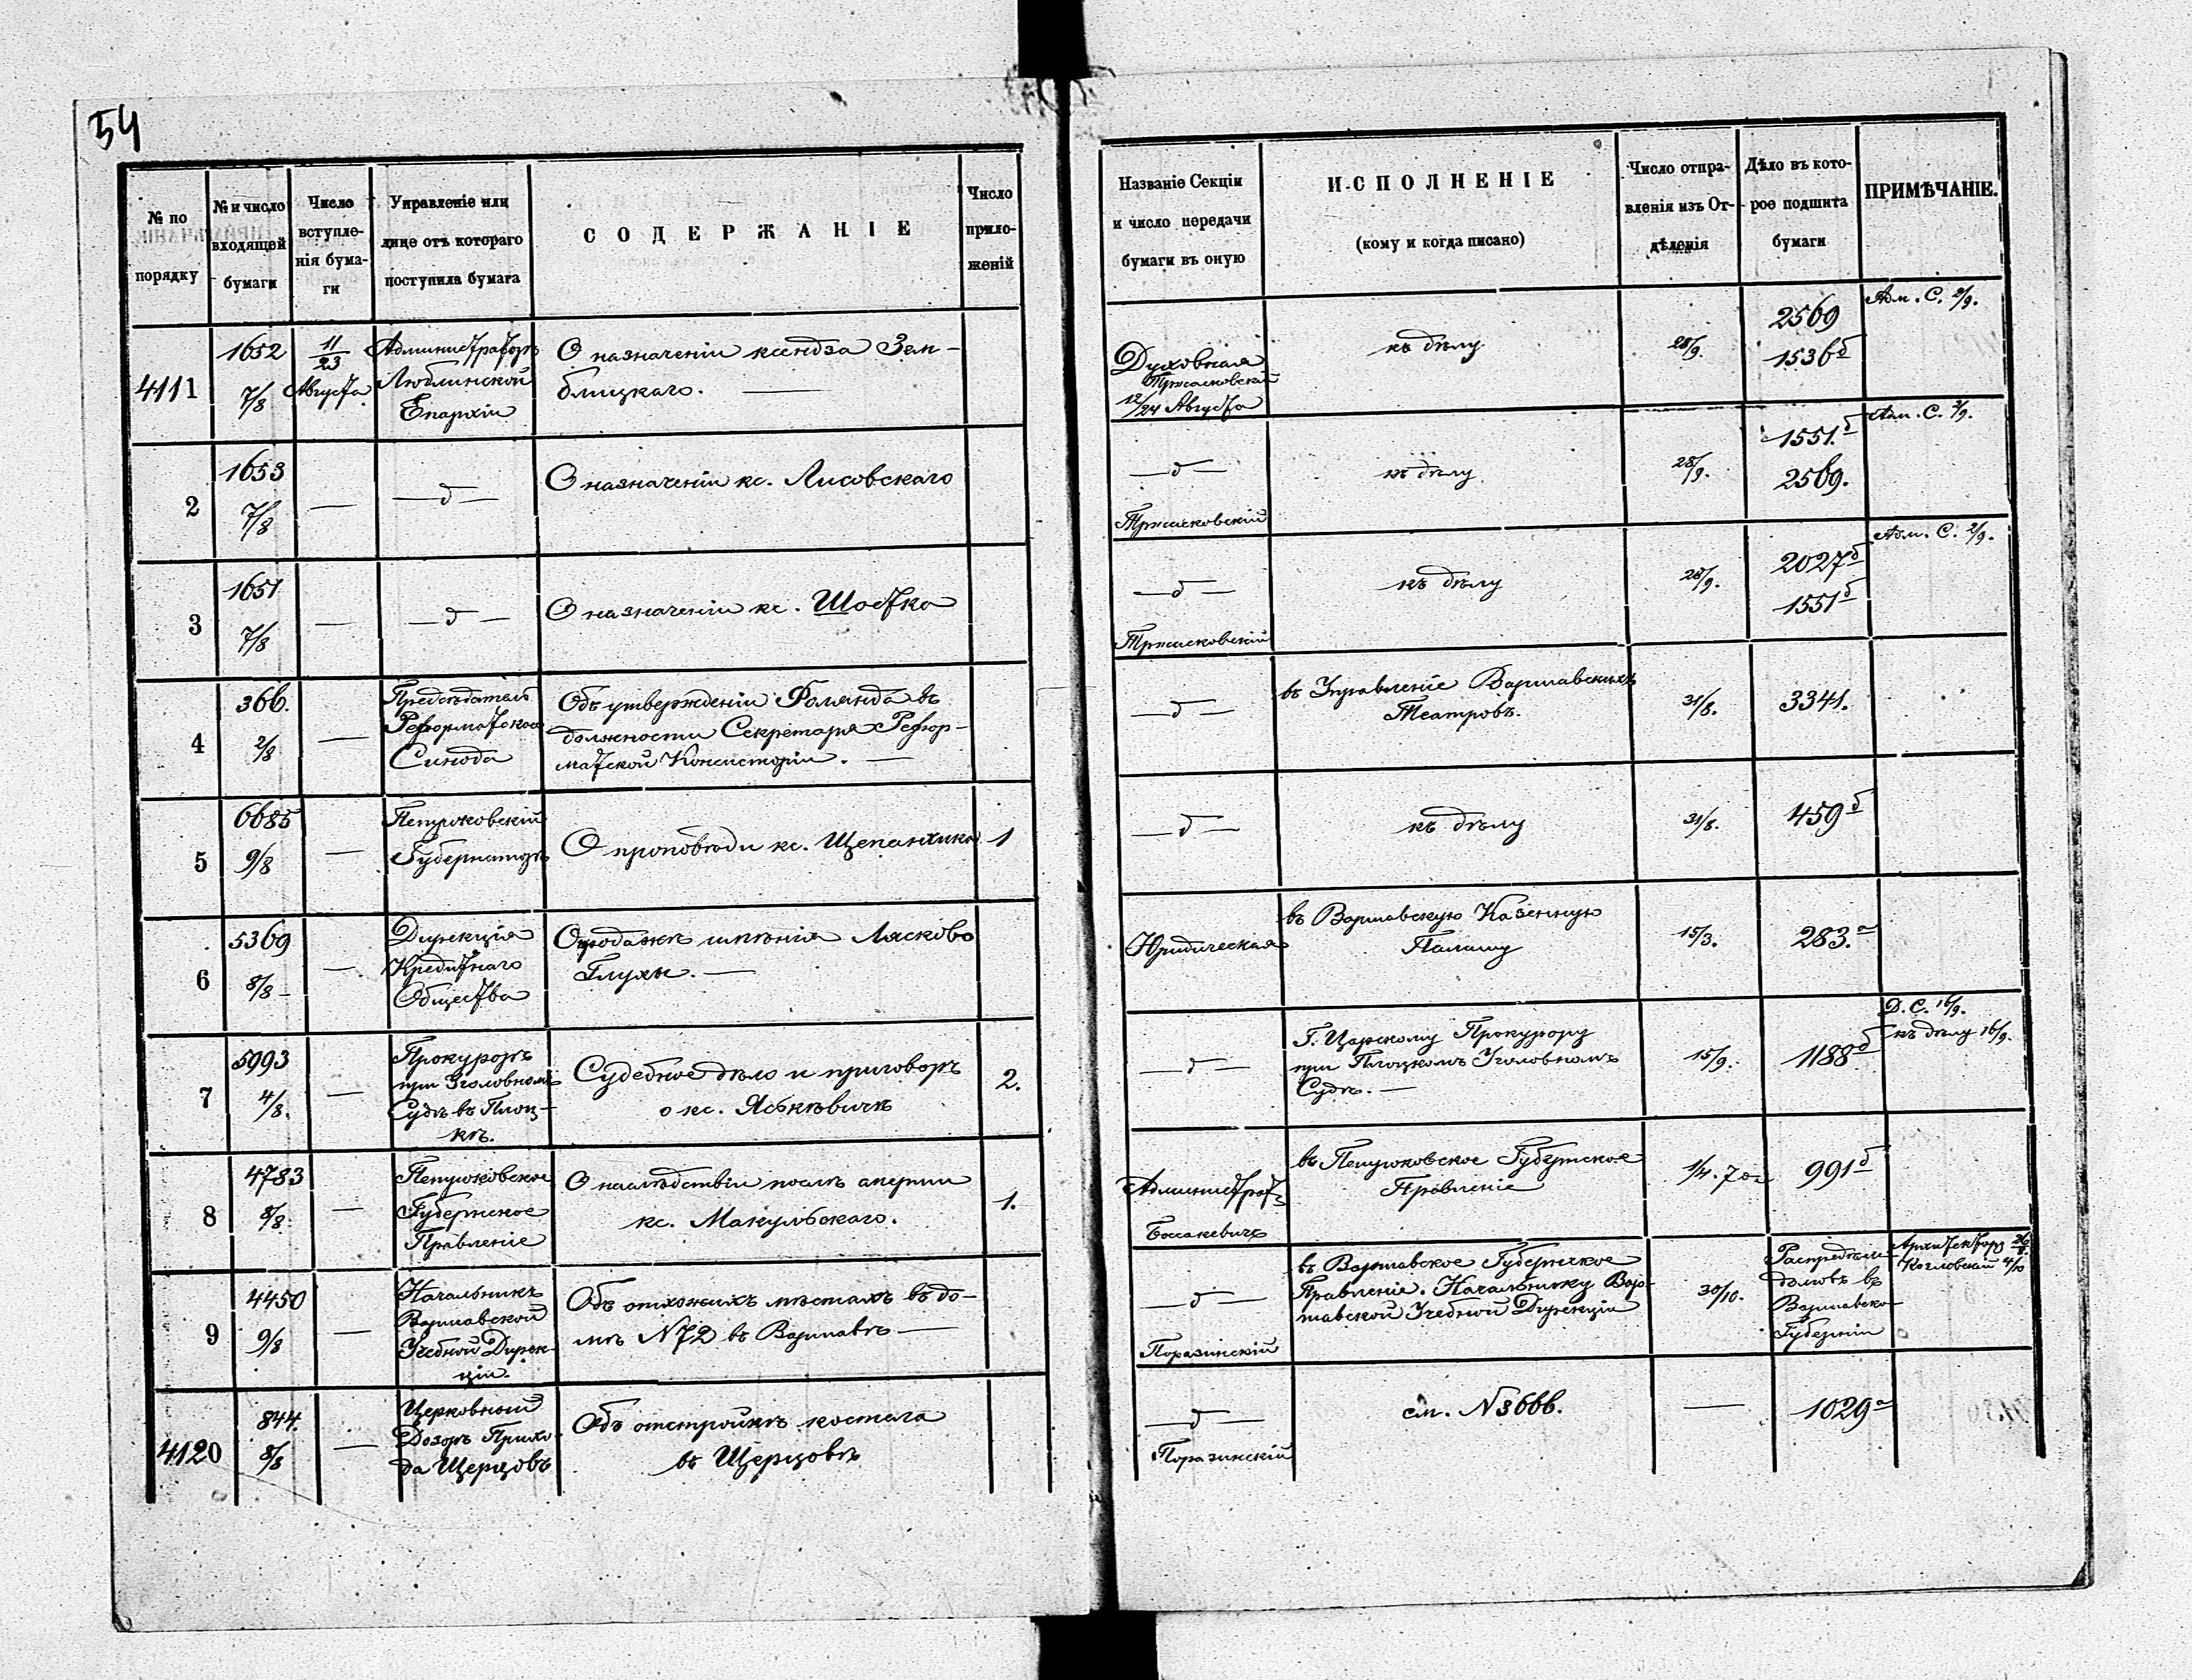 54
№ по порядку
№ и число входящей бумаги
Число вступле-нія бума-ги
Управленіе или лице отъ котораго поступила бумага
СОДЕРЖАНІЕ
Число прило-женій
Названіе Секціи и число передачи бумаги въ оную
ИСПОЛНЕНІЕ
(кому и когда писано)
Число отпра-вленія изъ От-дѣленія
Дѣло въ кото-рое подшита бумаги
ПРИМѢЧАНІЕ.
4111
1652
7/8
11/23
Августа
Администраторъ
Люблинской
Епархіи
О назначеніи ксендза Зем-
блицкаго. —
Духовная
12/24 Августа
къ дѣлу
28/9.
2569
1536 б
Адм. С. 2/9.
2
1653
7/8
—
— д —
О назначеніи кс. Лисовскаго
— д —
къ дѣлу
28/9.
1551. б
2569.
Адм. С. 2/9.
3
1651
7/8
—
— д —
О назначеніи кс. Шостка
— д —
къ дѣлу
28/9.
2027 б
1551 б
Адм. С. 2/9.
4
366.
2/8
—
Предсѣдатель
Реформатскаго
Синода
Объ утвержденіи Фолянда въ
должности Секретаря Рефор-
матской Консисторіи. —
— д —
въ Управленіе Варшавскихъ
Театровъ.
31/8.
3341.
5
6685
9/8
—
Петроковскій
Губернаторъ
О проповѣди кс. Щепанчика
1
— д —
къ дѣлу
31/8.
459 б
6
5369
8/8 -
—
Дирекція
Кредитнаго
Общества
О продажѣ имѣнія Лясково
Глухи. —
Юридическая
въ Варшавскую Казенную
Палату
15/3.
283. а
7
5993
4/8.
—
Прокуроръ
при Уголовномъ
Судѣ въ Плоц-
кѣ.
Судебное дѣло и приговоръ
о кс. Яськевичѣ
2.
— д —
Г. Царскому Прокурору
при Плоцкомъ Уголовномъ
Судѣ. —
15/9.
1188 б
Д. С. 16/9.
къ дѣлу 16/9.
8
4783
8/8.
—
Петроковское
Губернское
Правленіе
О наслѣдствіи послѣ смерти
кс. Макульскаго.
1.
Администрат.
въ Петроковское Губернское
Правленіе
1/4. 70 г
991 б
9
4450
9/8
—
Начальникъ
Варшавской
Учебной Дирек-
ціи.
Объ отхожихъ мѣстахъ въ до-
мѣ N 72 въ Варшавѣ —
— д —
Поразинскій
въ Варшавское Губернское
Правленіе. Начальнику Вар-
шавской Учебной Дирекціи
30/10.
домовъ въ
Варшавско
Губерніи
Архитектору
Козловскій 4/10
4120
844.
8/8
—
Церковный
Дозоръ Прихо-
да Щерцовъ
Объ отстройкѣ костела
въ Щерцовѣ
— д —
Поразинскій
см. N 3666.
—
1029 а